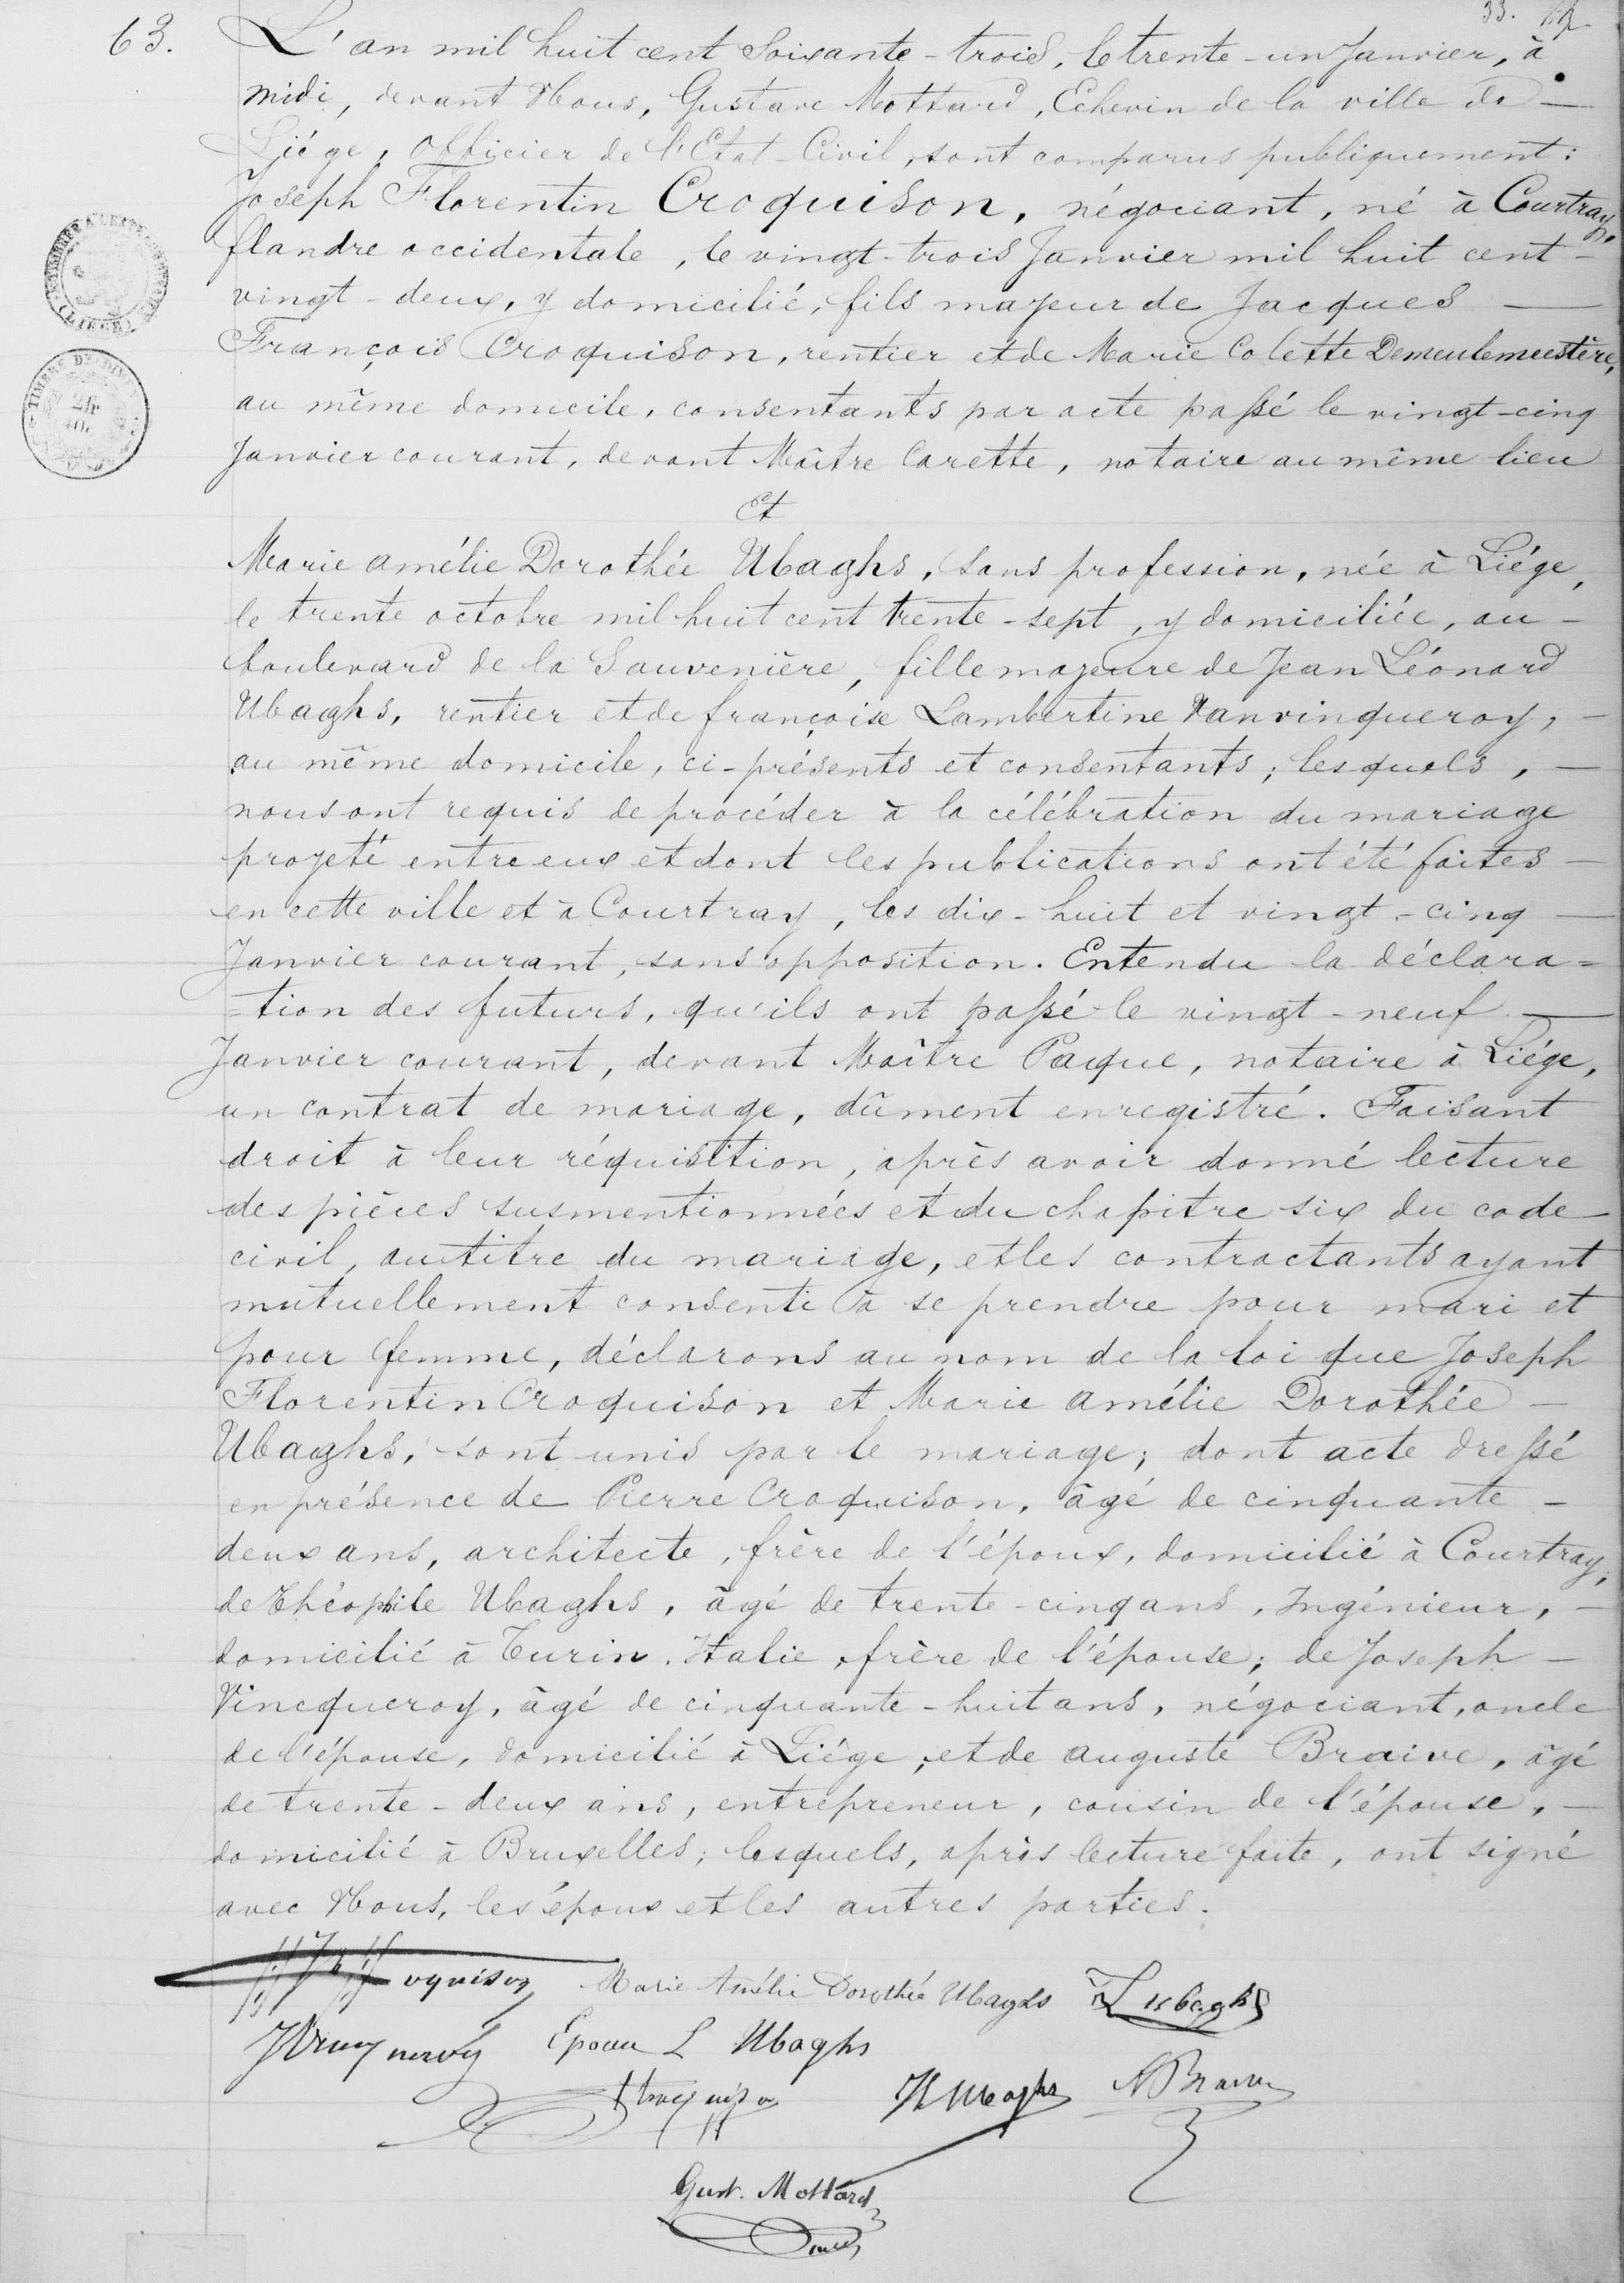 33.
63.
L'an mil huit cent Soixante-trois, le trente-un Janvier, à
midi, devant Nous, Gustave Mottard, Echevin de la ville de —
Liége, Officier de l'Etat-Civil, sont comparus publiquement:
Joseph Florentin Croquison, négociant, né à Courtray,
flandre occidentale, le vingt-trois Janvier mil huit cent-
vingt-deux, y domicilié, fils majeur de Jacques —
François Croquison, rentier et de Marie Colette Demeulemeestère,
au même domicile, consentants par acte passé le vingt-cinq
Janvier courant, devant Maître Carette, notaire au même lieu
Et
Marie amélie Dorothée Ubaghs, sans profession, née à Liége,
le trente octobre mil huit cent trente-sept, y domiciliée, au -
boulevard de la Sauvenière, fille majeure de Jean Léonard
Ubaghs, rentier et de françoise Lambertine Vanvinqueroy, -
au même domicile, ci-présents et consentants; lesquels, —
nous ont requis de procéder à la célébration du mariage
projeté entre eux et dont les publications ont été faites —
en cette ville et à Courtray, les dix-huit et vingt-cinq —
Janvier courant, sans opposition. Entendu la déclara=
=tion des futurs, qu'ils ont passé le vingt-neuf —
Janvier courant, devant Maître Paque, notaire à Liége,
un contrat de mariage, dûment enregistré. Faisant
droit à leur réquisition, après avoir donné lecture
des pièces susmentionnées et du chapitre six du code
civil, au titre du mariage, et les contractants ayant
mutuellement consenti à se prendre pour mari et
pour femme, déclarons au nom de la loi que Joseph
Florentin Croquison et Marie amélie Dorothée —
Ubaghs, sont unis par le mariage; dont acte dressé
en présence de Pierre Croquison, âgé de cinquante -
deux ans, architecte, frère de l'époux, domicilié à Courtray,
de Théophile Ubaghs, âgé de trente-cinq ans, Ingénieur, -
domicilié à Turin, Italie, frère de l'épouse; de Joseph —
Vincqueroy, âgé de cinquante-huit ans, négociant, oncle
de l'épouse, domicilié à Liége, et de auguste Braive, âgé
de trente-deux ans, entrepreneur, cousin de l'épouse, —
domicilié à Bruxelles; lesquels, après lecture faite, ont signé
avec Nous, les époux et les autres parties.
Marie Amélie Dorothée Ubaghs
Epouse L Ubaghs
Th Ubaghs
A Braive
Gust. Mottard
(LIEGE)
TIMBRE DE DIM